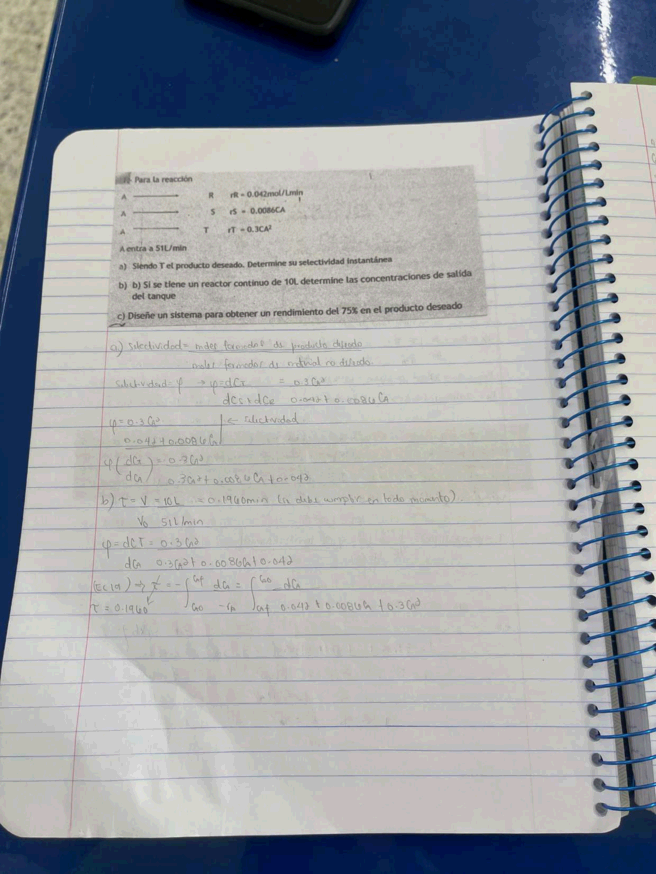 Para la reacción
A → R rR = 0.042mol/Lmin
A → S rS = 0.0086CA
A → T rT = 0.3CA²
A entra a 51L/min
a) Siendo T el producto deseado. Determine su selectividad instantánea
b) b) Si se tiene un reactor continuo de 10L determine las concentraciones de salida
del tanque
c) Diseñe un sistema para obtener un rendimiento del 75% en el producto deseado
a) Selectividad = moles formados de producto deseado
moles formados de material no deseado
Selectividad = φ → φ = dCT = 0.3CA²
dCS + dCR 0.042 + 0.0086CA
φ = 0.3CA² ← Selectividad
0.042 + 0.0086CA
φ (dCT) = 0.3CA²
dCA 0.3CA² + 0.0086CA + 0.042
b) τ = V = 10L = 0.1960min (se debe cumplir en todo momento).
V0 51L/min
φ = dCT = 0.3CA²
dCA 0.3CA² + 0.0086CA + 0.042
⇒ τ = - ∫ CAf dCA = ∫ CA0 dCA
τ = 0.1960 CA0 -rA CAf 0.042 + 0.0086CA + 0.3CA²